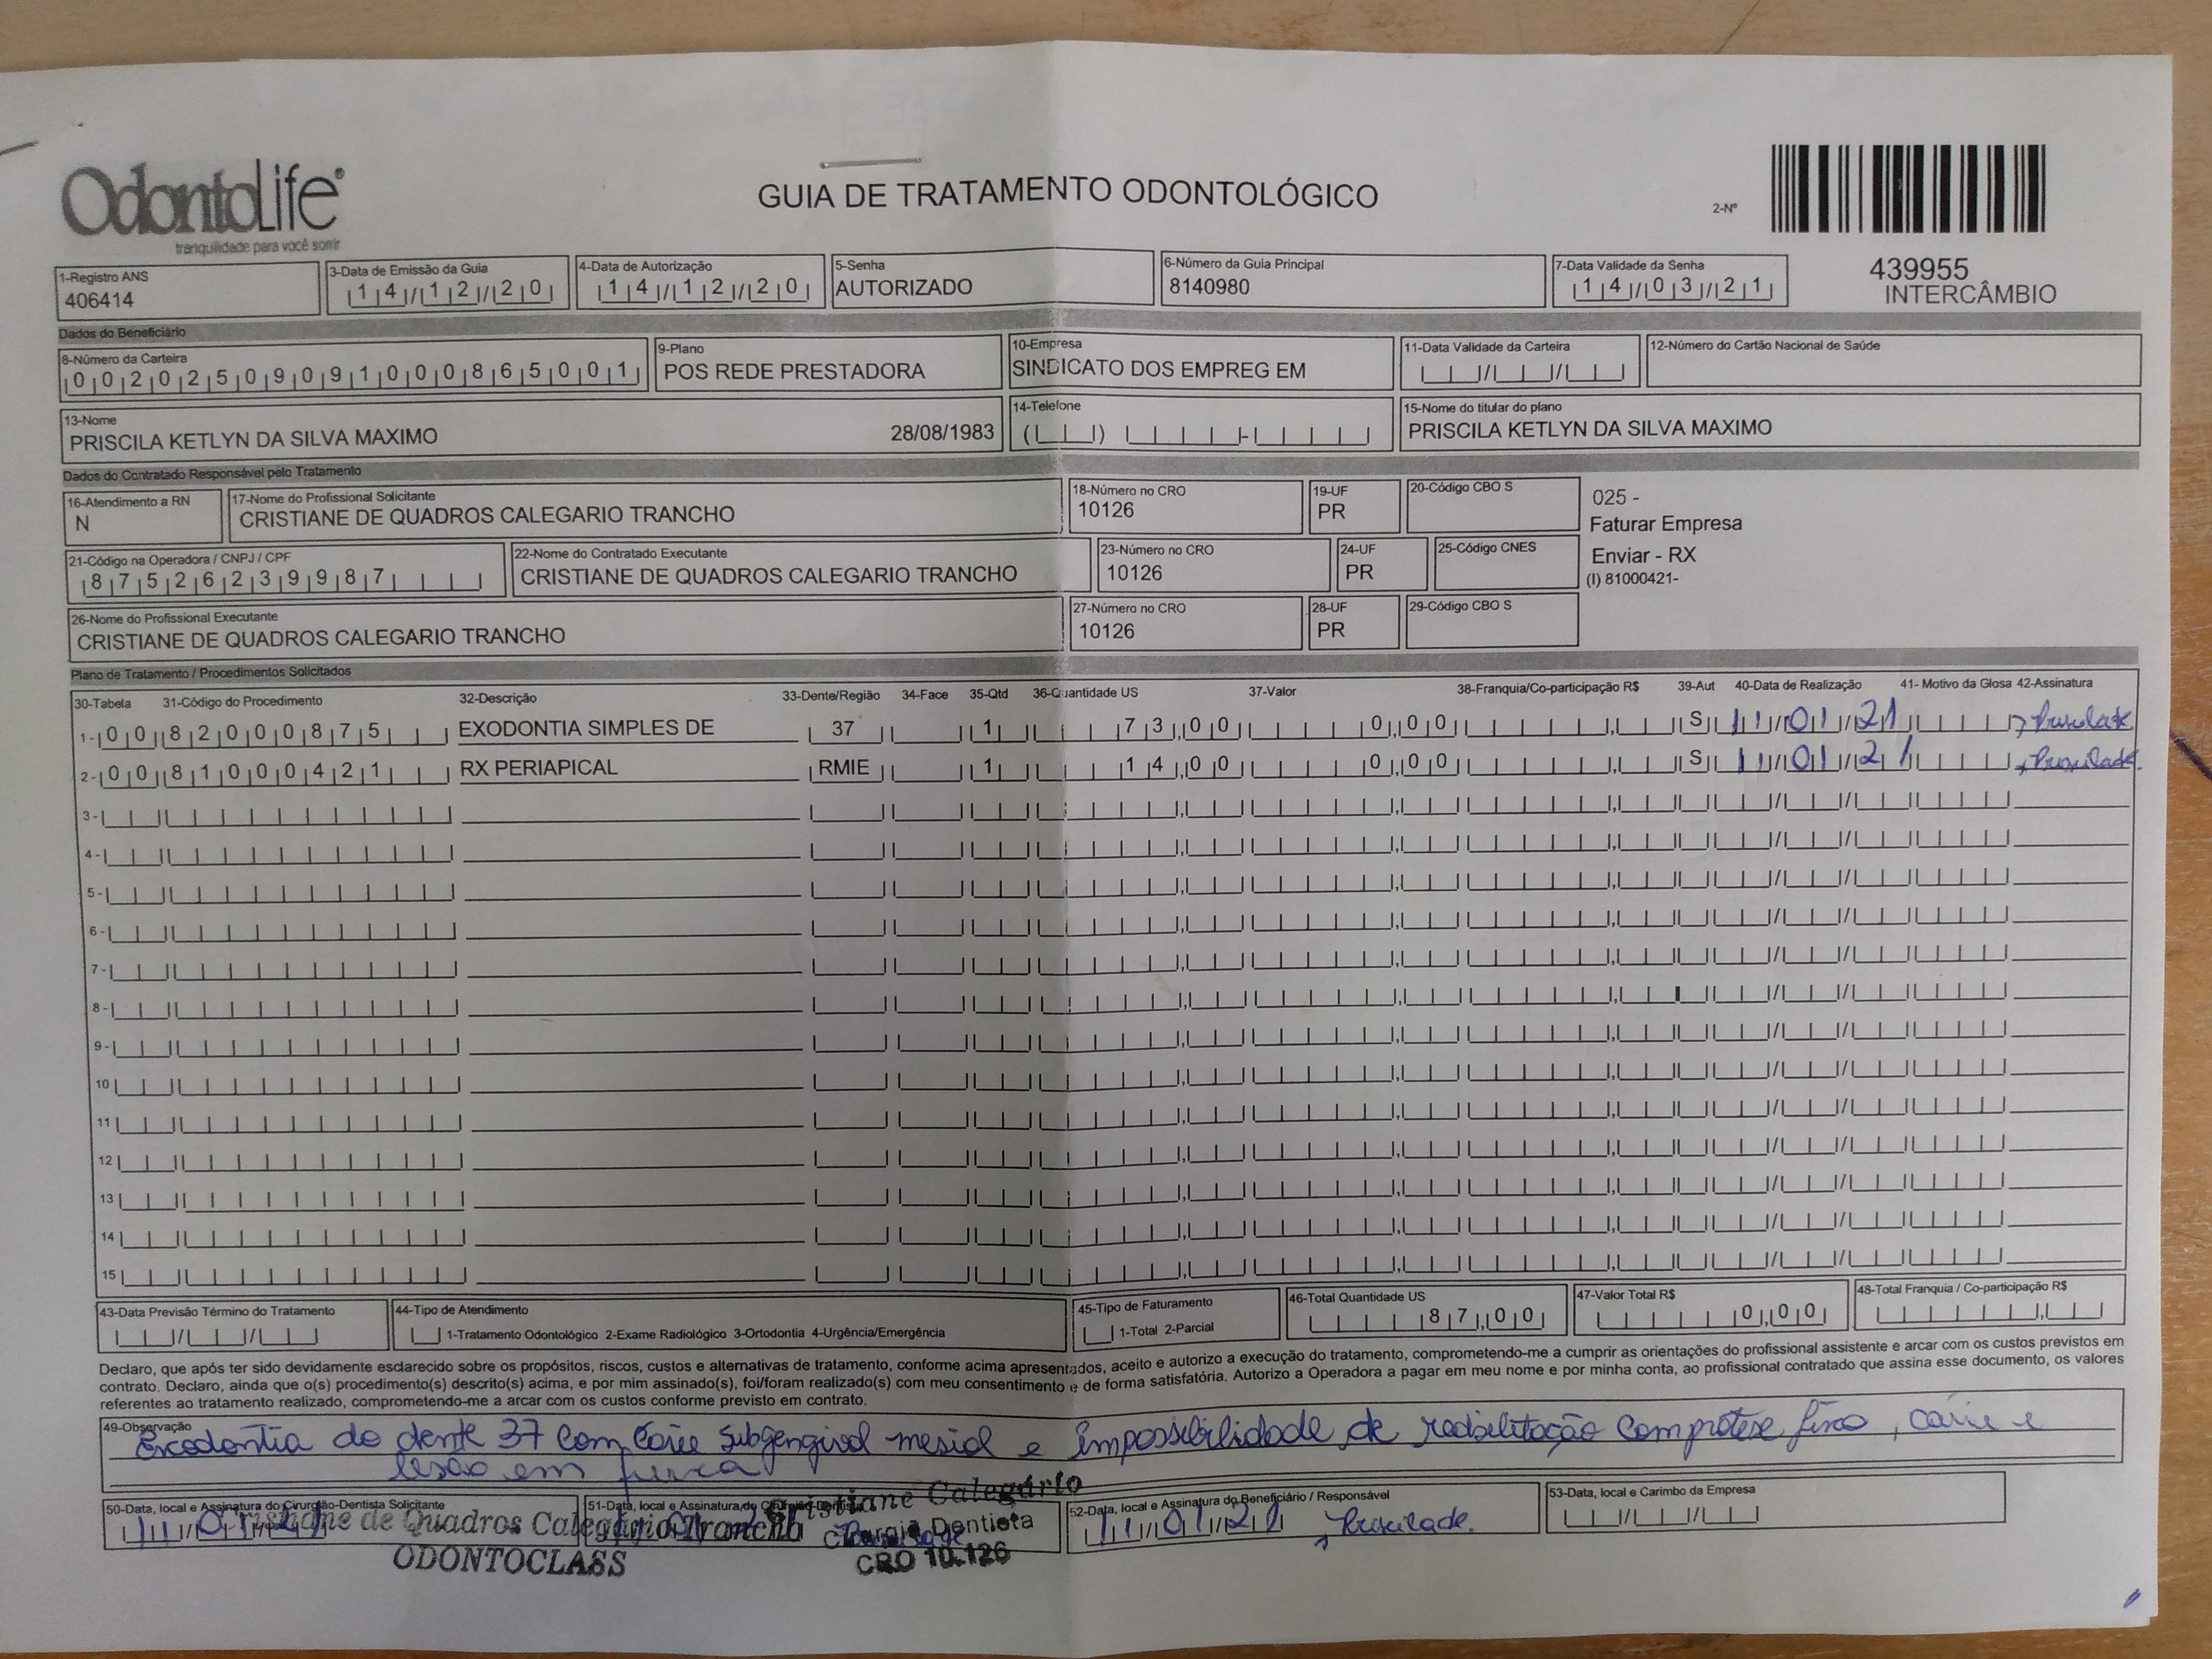 OdontoLife
tranquilidade para você sorrir
GUIA DE TRATAMENTO ODONTOLÓGICO
2-Nº
439955
INTERCÂMBIO
1-Registro ANS
406414
3-Data de Emissão da Guia
14/12/20
4-Data de Autorização
14/12/20
5-Senha
AUTORIZADO
6-Número da Guia Principal
8140980
7-Data Validade da Senha
14/03/21
Dados do Beneficiário
8-Número da Carteira
00202509091000865001
9-Plano
POS REDE PRESTADORA
10-Empresa
SINDICATO DOS EMPREG EM
11-Data Validade da Carteira
12-Número do Cartão Nacional de Saúde
13-Nome
PRISCILA KETLYN DA SILVA MAXIMO 28/08/1983
14-Telefone
15-Nome do titular do plano
PRISCILA KETLYN DA SILVA MAXIMO
Dados do Contratado Responsável pelo Tratamento
16-Atendimento a RN
N
17-Nome do Profissional Solicitante
CRISTIANE DE QUADROS CALEGARIO TRANCHO
18-Número no CRO
10126
19-UF
PR
20-Código CBO S
025 -
Faturar Empresa
Enviar - RX
(I) 81000421-
21-Código na Operadora / CNPJ / CPF
87526239987
22-Nome do Contratado Executante
CRISTIANE DE QUADROS CALEGARIO TRANCHO
23-Número no CRO
10126
24-UF
PR
25-Código CNES
26-Nome do Profissional Executante
CRISTIANE DE QUADROS CALEGARIO TRANCHO
27-Número no CRO
10126
28-UF
PR
29-Código CBO S
Plano de Tratamento / Procedimentos Solicitados
30-Tabela 31-Código do Procedimento 32-Descrição 33-Dente/Região 34-Face 35-Qtd 36-Quantidade US 37-Valor 38-Franquia/Co-participação R$ 39-Aut 40-Data de Realização 41- Motivo da Glosa 42-Assinatura
1- 00 82000875 EXODONTIA SIMPLES DE 37 1 73,00 0,00 S 11/01/21
2- 00 81000421 RX PERIAPICAL RMIE 1 14,00 0,00 S 11/01/21
3-
4-
5-
6-
7-
8-
9-
10
11
12
13
14
15
43-Data Previsão Término do Tratamento
44-Tipo de Atendimento
1-Tratamento Odontológico 2-Exame Radiológico 3-Ortodontia 4-Urgência/Emergência
45-Tipo de Faturamento
1-Total 2-Parcial
46-Total Quantidade US
87,00
47-Valor Total R$
0,00
48-Total Franquia / Co-participação R$
Declaro, que após ter sido devidamente esclarecido sobre os propósitos, riscos, custos e alternativas de tratamento, conforme acima apresentados, aceito e autorizo a execução do tratamento, comprometendo-me a cumprir as orientações do profissional assistente e arcar com os custos previstos em
contrato. Declaro, ainda que o(s) procedimento(s) descrito(s) acima, e por mim assinado(s), foi/foram realizado(s) com meu consentimento e de forma satisfatória. Autorizo a Operadora a pagar em meu nome e por minha conta, ao profissional contratado que assina esse documento, os valores
referentes ao tratamento realizado, comprometendo-me a arcar com os custos conforme previsto em contrato.
49-Observação
Exodontia do dente 37 com cárie subgengival mesial e impossibilidade de reabilitação com prótese fixa, cárie e
lesão em furca
50-Data, local e Assinatura do Cirurgião-Dentista Solicitante
11/01/21
51-Data, local e Assinatura do Cirurgião-Dentista
52-Data, local e Assinatura do Beneficiário / Responsável
11/01/21
53-Data, local e Carimbo da Empresa
Cristiane de Quadros Calegário Trancho
ODONTOCLASS
Cristiane Calegário
Cirurgiã Dentista
CRO 10.126